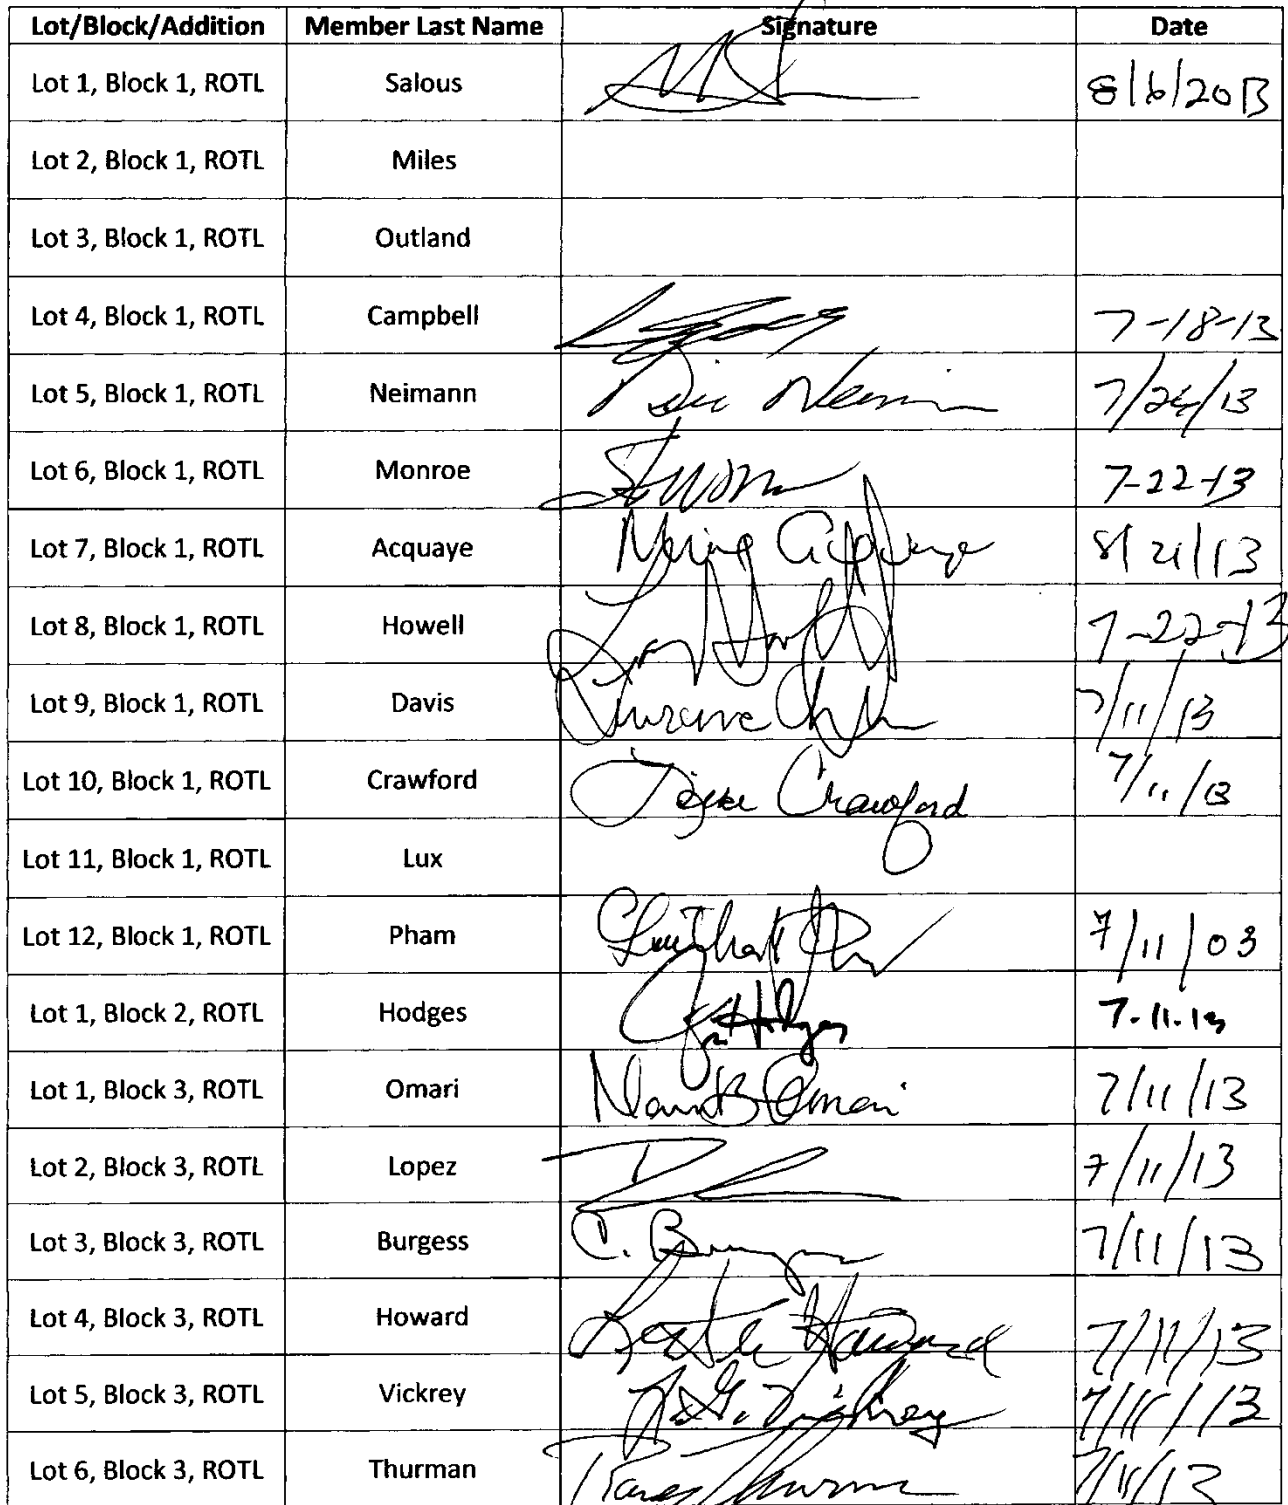 Lot/Block/Addition Member Last Name Signature Date
Lot 1, Block 1, ROTL Salous 8/6/2013
Lot 2, Block 1, ROTL Miles
Lot 3, Block 1, ROTL Outland
Lot 4, Block 1, ROTL Campbell 7-18-13
Lot 5, Block 1, ROTL Neimann 7/24/13
Lot 6, Block 1, ROTL Monroe 7-22-13
Lot 7, Block 1, ROTL Acquaye 8/21/13
Lot 8, Block 1, ROTL Howell 7-22-13
Lot 9, Block 1, ROTL Davis 7/11/13
Lot 10, Block 1, ROTL Crawford Crawford 7/11/13
Lot 11, Block 1, ROTL Lux
Lot 12, Block 1, ROTL Pham 7/11/03
Lot 1, Block 2, ROTL Hodges Hodges 7.11.13
Lot 1, Block 3, ROTL Omari Omari 7/11/13
Lot 2, Block 3, ROTL Lopez 7/11/13
Lot 3, Block 3, ROTL Burgess C. Burgess 7/11/13
Lot 4, Block 3, ROTL Howard Howard 7/11/13
Lot 5, Block 3, ROTL Vickrey Vickrey 7/11/13
Lot 6, Block 3, ROTL Thurman Thurman 7/11/13